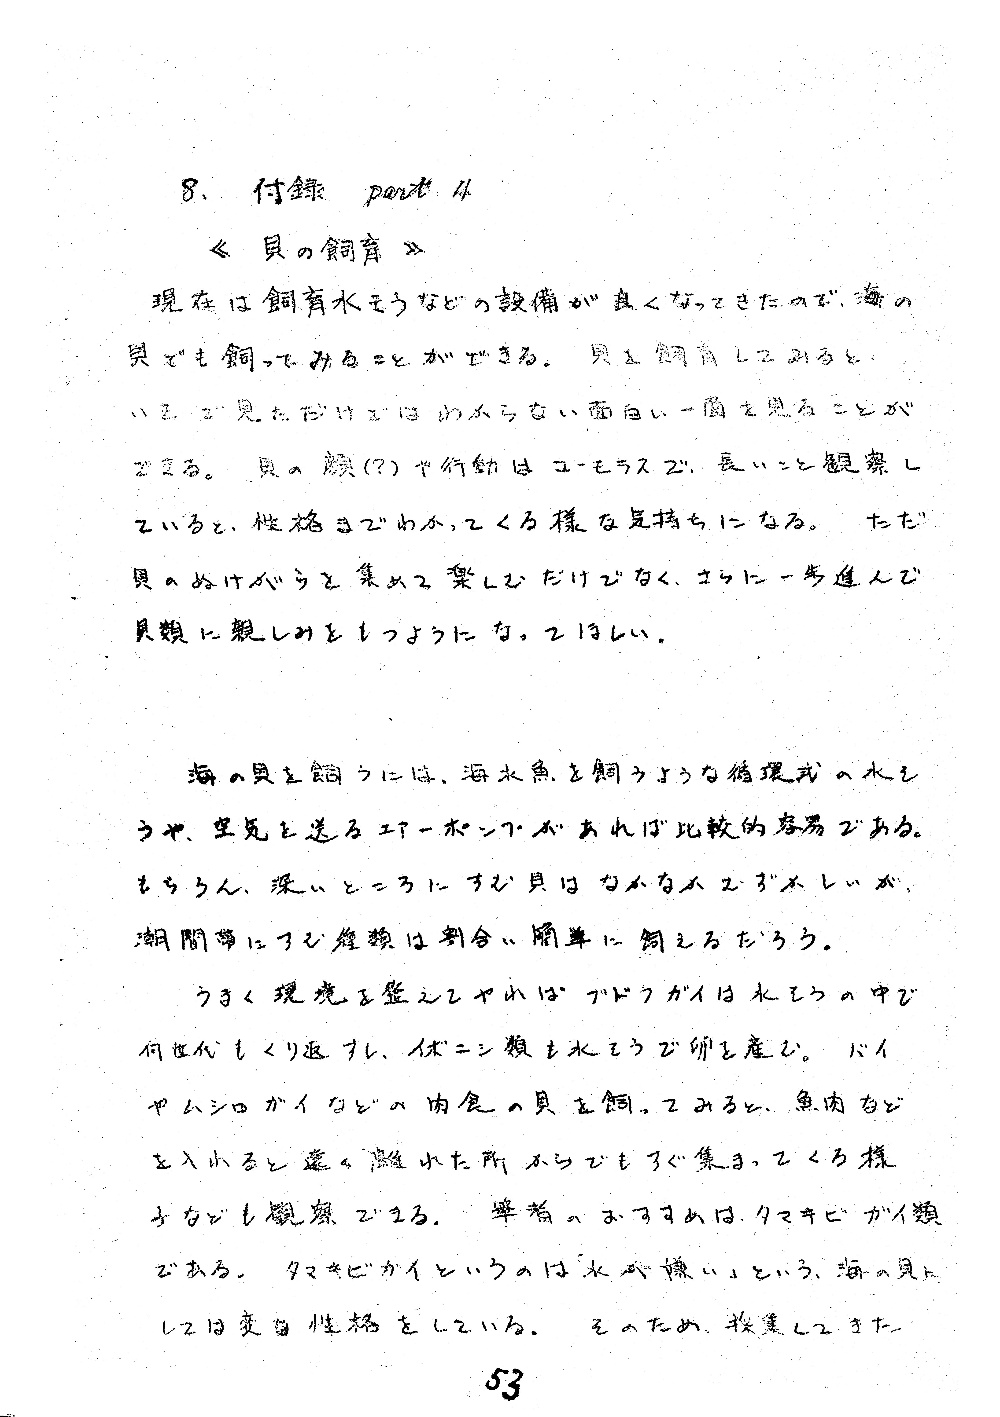 8. 付録 part 4
《 貝の飼育 》
現在は飼育水そうなどの設備が良くなってきたので、海の
貝でも飼ってみることができる。 貝を飼育してみると、
いそで見ただけではわからない面白い一面を見ることが
できる。 貝の顔(?)や行動はユーモラスで、長いこと観察し
ていると、性格までわかってくる様な気持ちになる。 ただ
貝のぬけがらを集めて楽しむだけでなく、さらに一歩進んで
貝類に親しみをもつようになってほしい。
海の貝を飼うには、海水魚を飼うような循環式の水そ
うや、空気を送るエアーポンプがあれば比較的容易である。
もちろん、深いところにすむ貝はなかなかむずかしいが、
潮間帯にすむ種類は割合い簡単に飼えるだろう。
うまく環境を整えてやればブドウガイは水そうの中で
何世代もくり返すし、イボニシ類も水そうで卵を産む。 バイ
やムシロガイなどの肉食の貝を飼ってみると、魚肉など
を入れると遠く離れた所からでもすぐ集まってくる様
子なども観察できる。 筆者のおすすめは、タマキビガイ類
である。 タマキビガイというのは「水が嫌い」という、海の貝に
しては変な性格をしている。 そのため、採集してきた
53